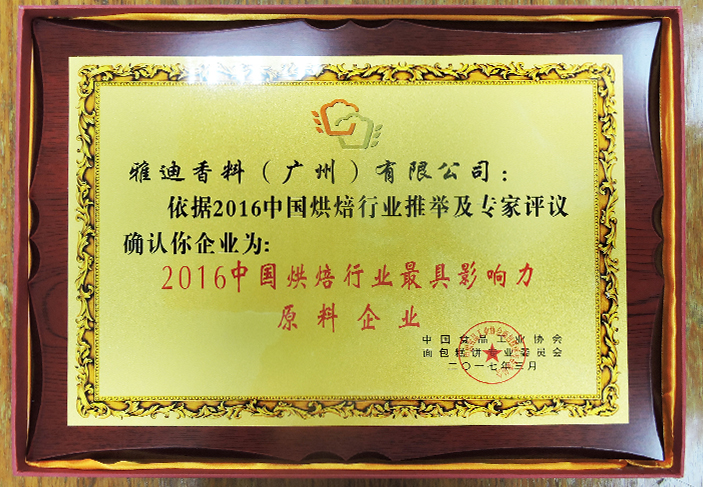 雅迪香料（广州）有限公司：
依据2016中国烘焙行业推举及专家评议
确认你企业为：
2016中国烘焙行业最具影响力
原料企业
中国食品工业协会
面包糕饼专业委员会
二〇一七年三月